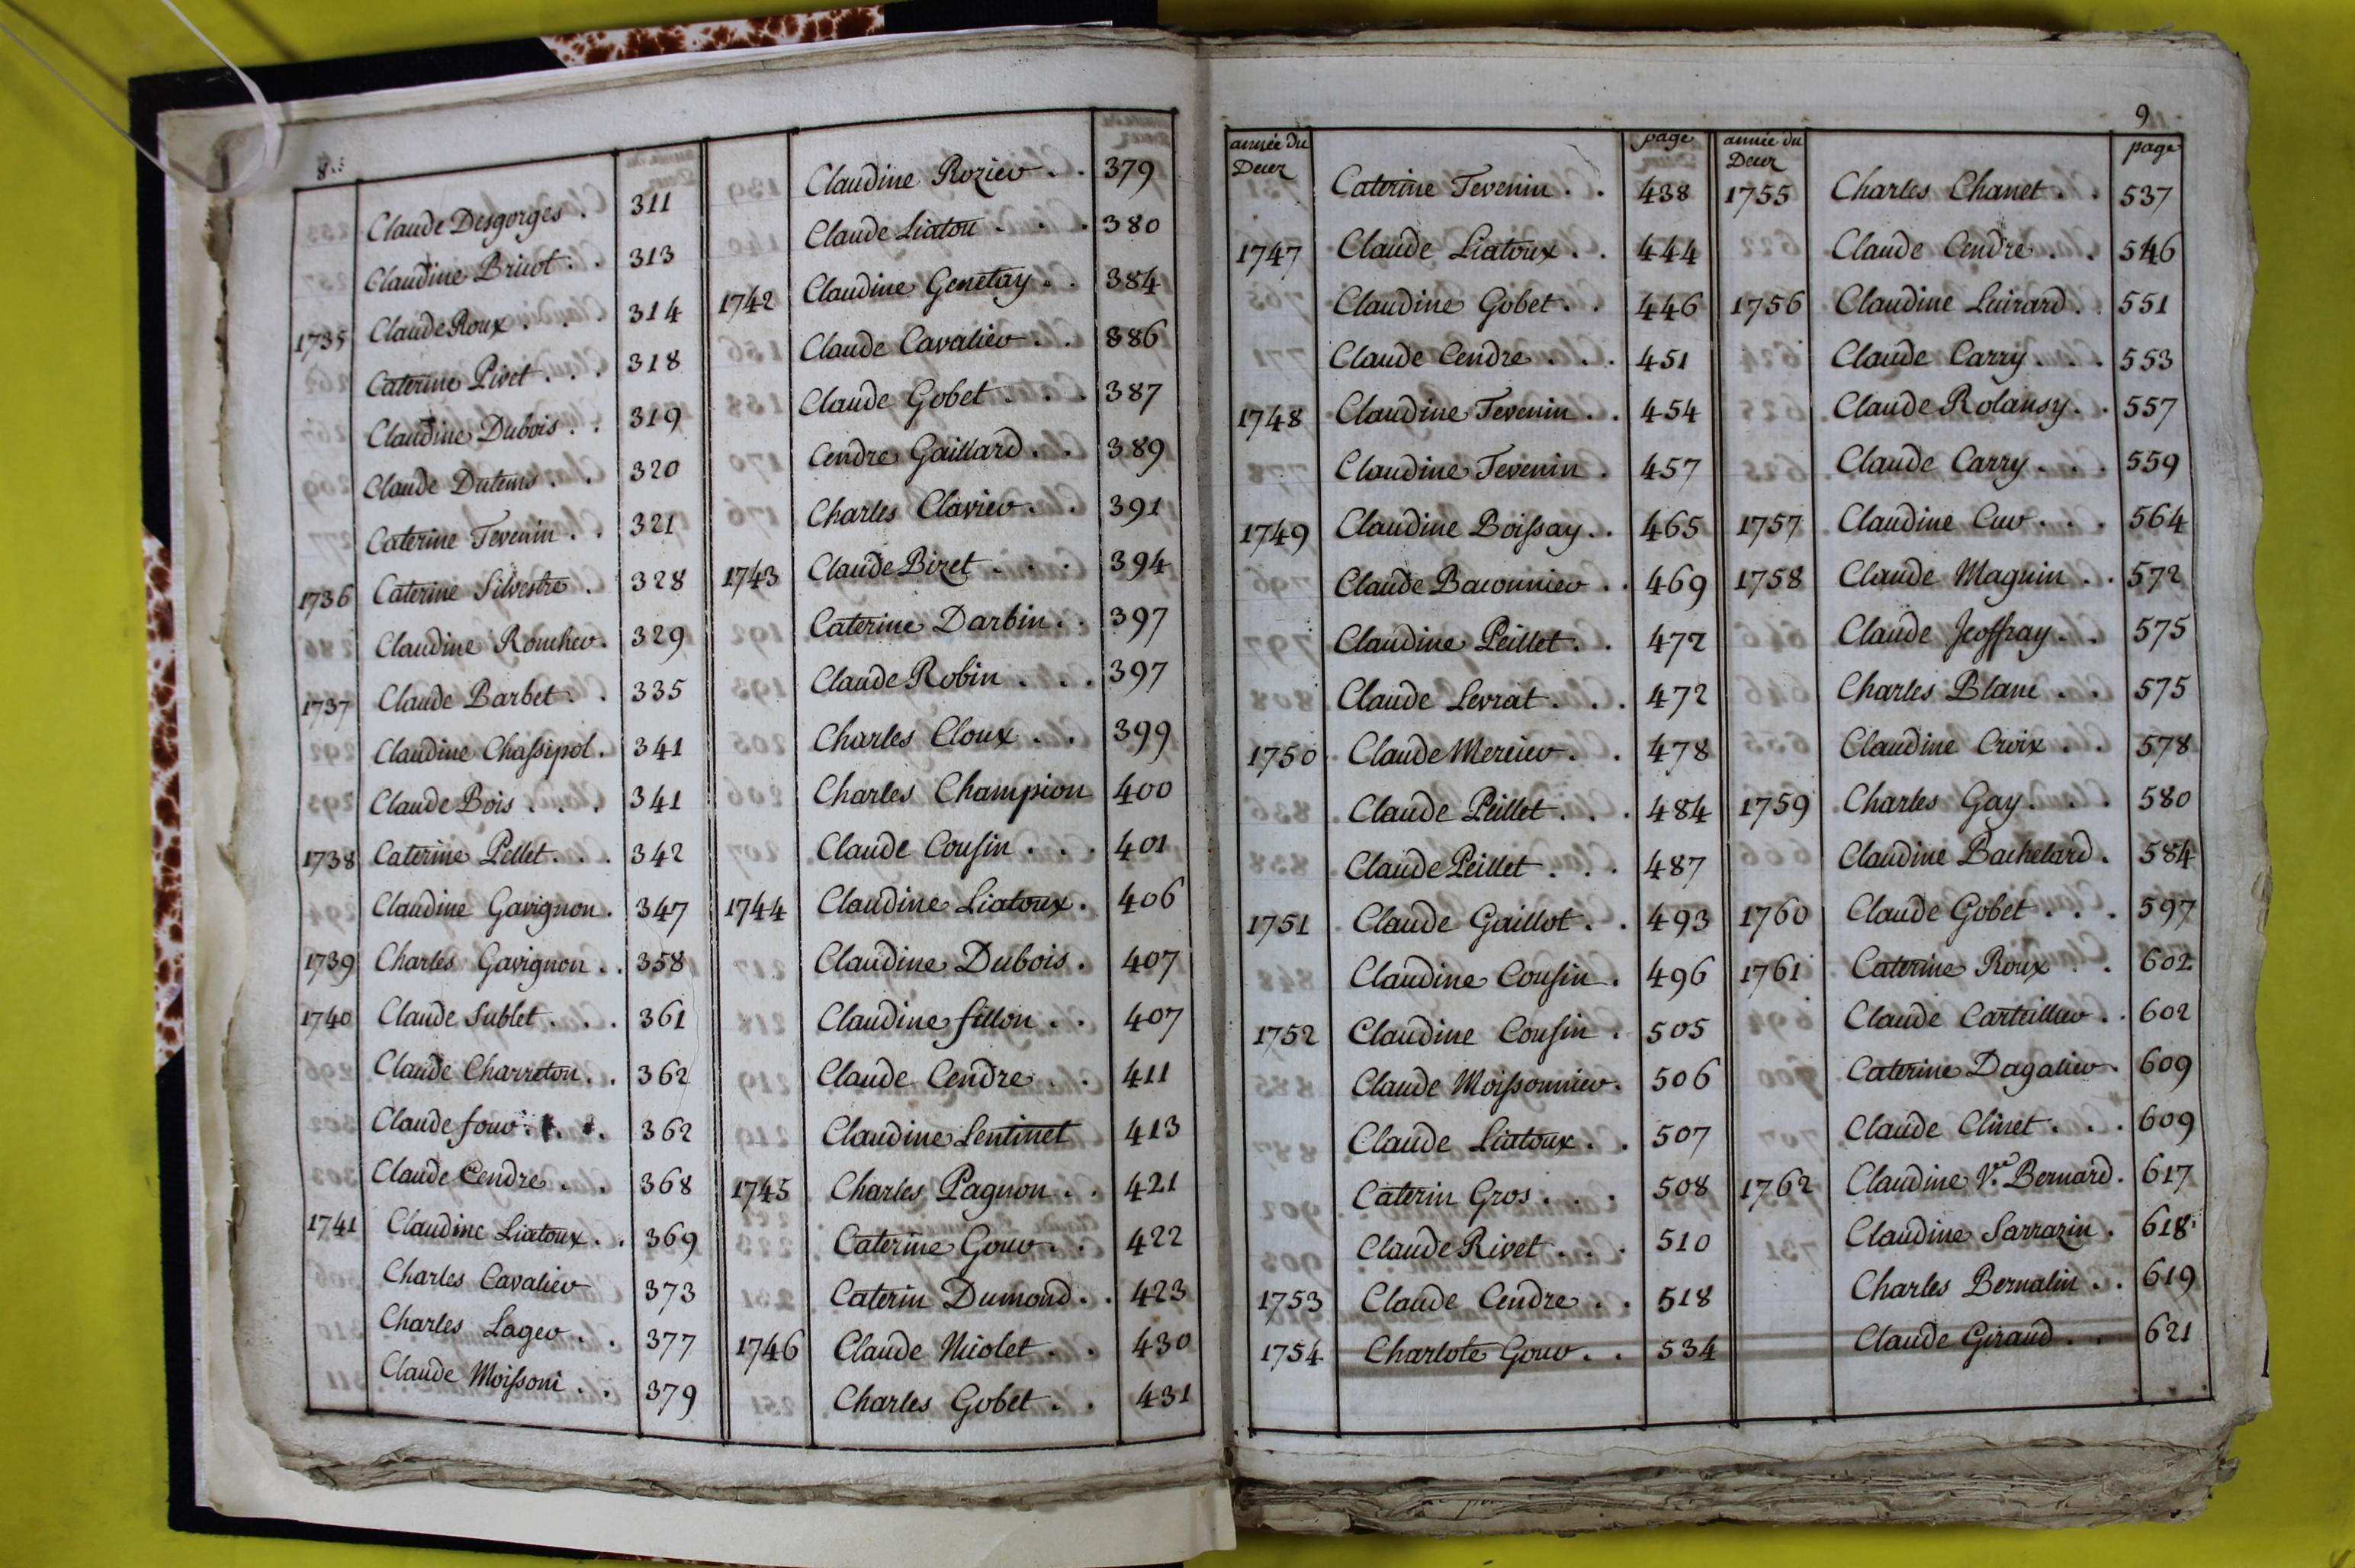 8
Claude Desgorges . 311
Claudine Bricot . . 313
1735 Claude Roux . . 314
Caterine Pivet . . . 318
Claudine Dubois . . 319
Claude Dutems . . 320
Caterine Tevenin . . 321
1736 Caterine Silvestre . 328
Claudine Roncher . 329
1737 Claude Barbet . . 335
Claudine Chassipol . 341
Claude Bois . . . 341
1738 Caterine Pellet . . . 342
Claudine Gavignon . 347
1739 Charles Gavignon . . 358
1740 Claude Sublet . . . 361
Claude Charreton . . 362
Claude four . . . 362
Claude Cendre . . 368
1741 Claudine Liatoux . . 369
Charles Cavalier 373
Charles Lager . . 377
Claude Moissoni . . 379
Claudine Rozier . . 379
Claude Liatou . . . 380
1742 Claudine Genetay . . 384
Claude Cavalier . . 386
Claude Gobet . . . 387
Cendre Gaillard . . 389
Charles Clavier . . 391
1743 Claude Bizet . . . 394
Caterine Darbin . . 397
Claude Robin . . . 397
Charles Cloux . . 399
Charles Champion 400
Claude Cousin . . . 401
1744 Claudine Liatoux . 406
Claudine Dubois . 407
Claudine fillon . . 407
Claude Cendre . . 411
Claudine Lentinet 413
1745 Charles Pagnon . . 421
Caterine Gour . . 422
Caterin Dumond . . 423
1746 Claude Nicolet . . 430
Charles Gobet . . 431
9
année du Decez page année du Decez page
Caterine Tevenin . . 438
1747 Claude Liatoux . . 444
Claudine Gobet . . 446
Claude Cendre . . . 451
1748 Claudine Tevenin . . 454
Claudine Tevenin . 457
1749 Claudine Boissay . . 465
Claude Baconnier . . 469
Claudine Peillet . . 472
Claude Levrat . . . 472
1750 Claude Mercier . . 478
Claude Peillet . . . 484
Claude Peillet . . . 487
1751 Claude Gaillot . . 493
Claudine Cousin . 496
1752 Claudine Cousin . 505
Claude Moissonnier . 506
Claude Liatoux . . 507
Caterin Gros . . . 508
Claude Rivet . . . 510
1753 Claude Cendre . . 518
1754 Charlote Gour . . 534
1755 Charles Chanet . . 537
Claude Cendre . . . 546
1756 Claudine Luirard . . 551
Claude Carry . . . 553
Claude Rolansy . . 557
Claude Carry . . . 559
1757 Claudine Cur . . . 564
1758 Claude Magnin . . 572
Claude Jeoffray . . 575
Charles Blanc . . 575
Claudine Croix . . 578
1759 Charles Gay . . . 580
Claudine Bachelard . 584
1760 Claude Gobet . . . 597
1761 Caterine Roux . . 602
Claude Carteillier . . 602
Caterine Dagalier . 609
Claude Clinet . . . 609
1762 Claudine Ve. Bernard . 617
Claudine Sarrazin . 618
Charles Bernalin . . 619
Claude Giraud . . 621